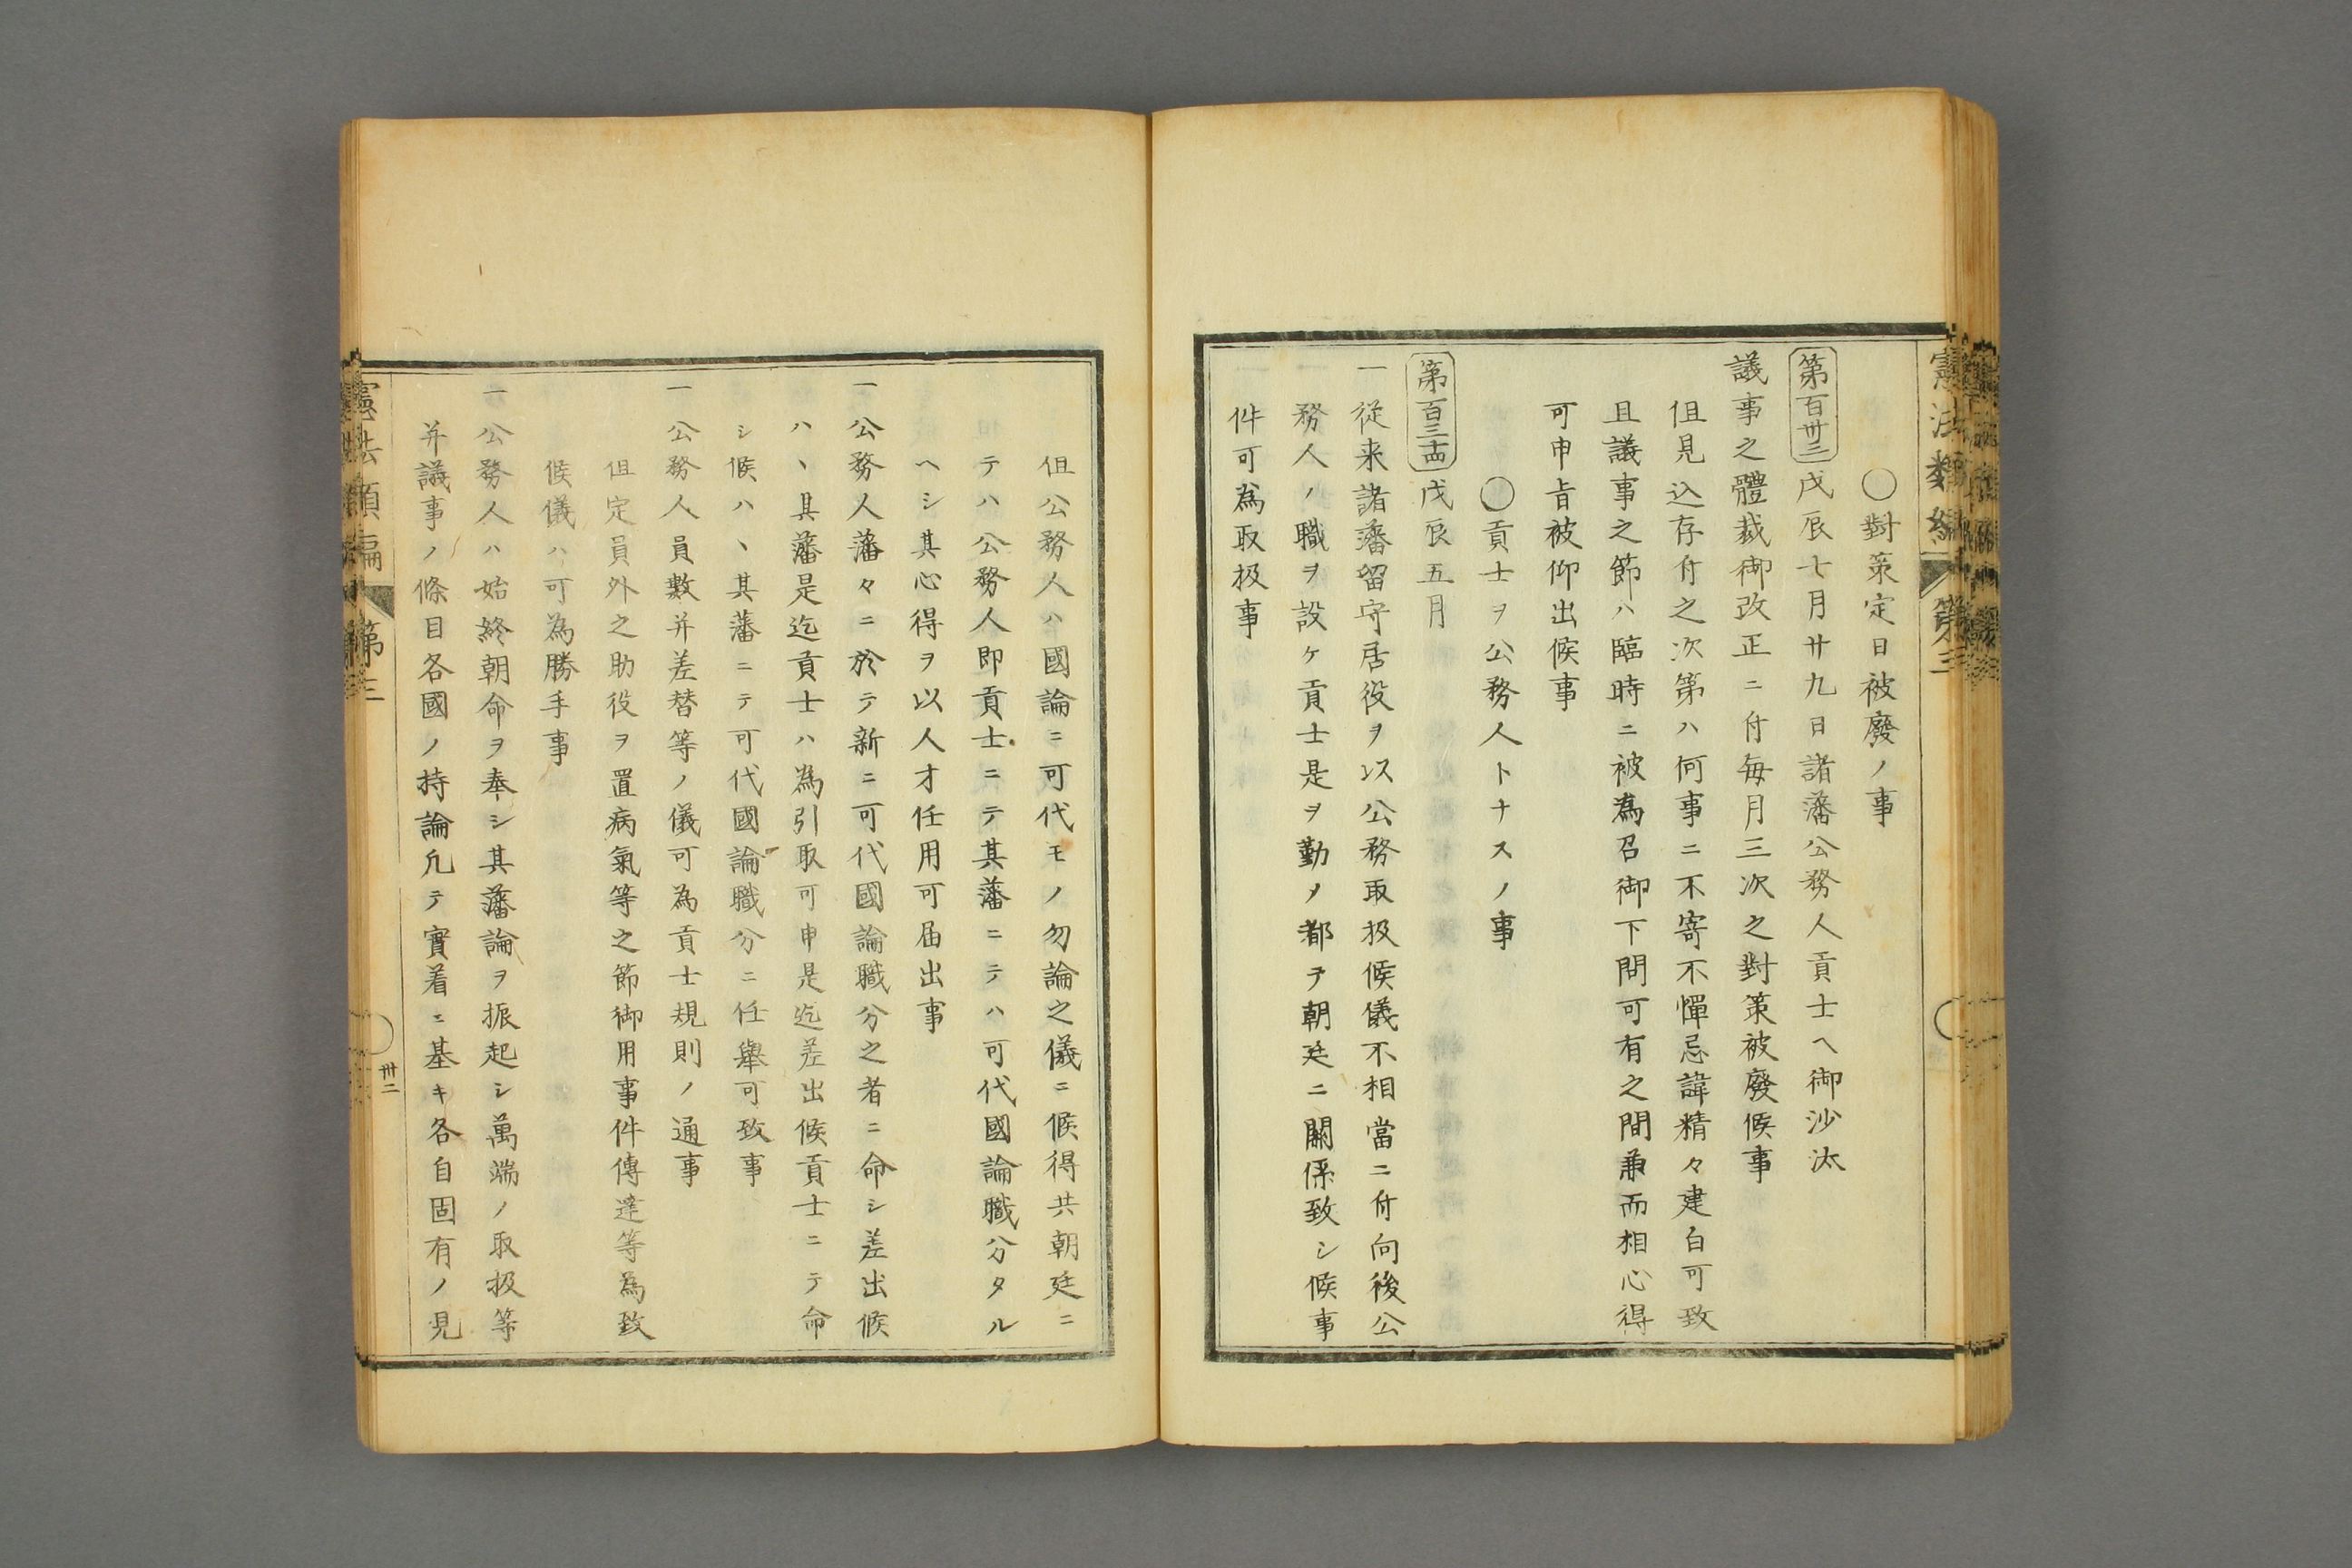 憲法類編 第三
○對策定日被廢ノ事
第百卅三 戊辰七月廿九日諸藩公務人貢士ヘ御沙汰
議事之體裁御改正ニ付毎月三次之對策被廢候事
但見込存付之次第ハ何事ニ不寄不憚忌諱精々建白可致
且議事之節ハ臨時ニ被為召御下問可有之間兼而相心得
可申旨被仰出候事
○貢士ヲ公務人トナスノ事
第百三十四 戊辰五月
一從来諸藩留守居役ヲ以公務取扱候儀不相當ニ付向後公
務人ノ職ヲ設ケ貢士是ヲ勤メ都テ朝廷ニ關係致シ候事
件可為取扱事
但公務人ハ國論ニ可代モノ勿論之儀ニ候得共朝廷ニ
テハ公務人即貢士ニテ其藩ニテハ可代國論職分タル
ヘシ其心得ヲ以人才任用可届出事
一公務人藩々ニ於テ新ニ可代國論職分之者ニ命シ差出候
ハヽ其藩是迄貢士ハ為引取可申是迄差出候貢士ニテ命
シ候ハヽ其藩ニテ可代國論職分ニ任舉可致事
一公務人員數并差替等ノ儀可為貢士規則ノ通事
但定員外之助役ヲ置病氣等之節御用事件傳達等為致
候儀ハ可為勝手事
一公務人ハ始終朝命ヲ奉シ其藩論ヲ振起シ萬端ノ取扱等
并議事ノ條目各國ノ持論凡テ實着ニ基キ各自固有ノ見
憲法類編 第三
卅二